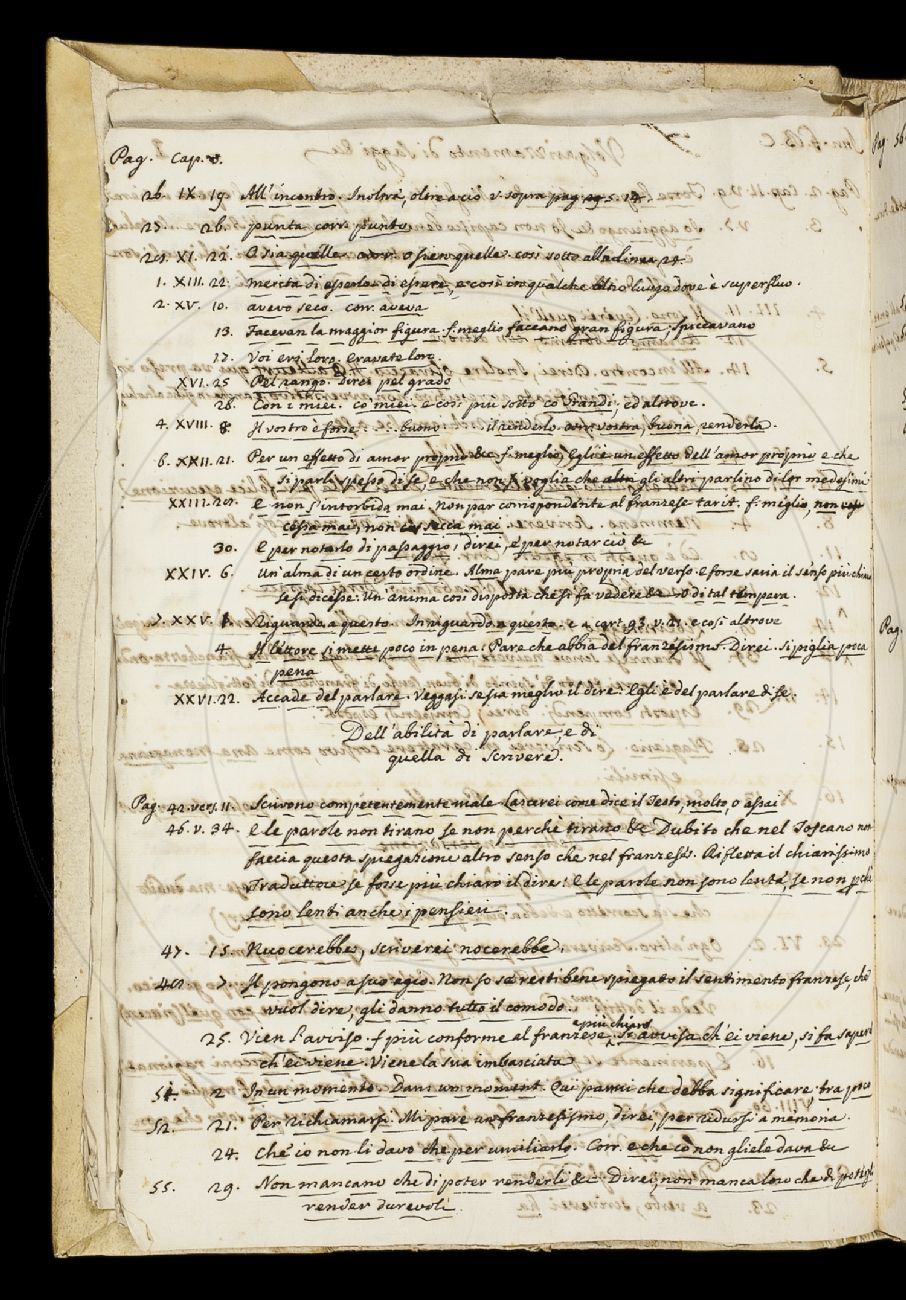 Pag. Cap. v.
26. IX. 19. All'incontro. Inoltre, oltre a ciò v. sopra pag. 5. 14.
27. 26. punta corr. punto
29. XI. 22. O sia quelle o sien quelle così sotto alla linea 24.
1. XIII. 22. Merita di esser di essere, e così in qualche altro luogo dove è superfluo.
2. XV. 10. avevo seco. corr. aveva
13. Facevan la maggior figura. f. meglio faceano gran figura, spiccavano
17. Voi eri loro. Eravate loro.
XVI. 25 Pel rango. Direi pel grado
28. Con i miei. co' miei. e così più sotto co' Grandi, ed altrove.
4. XVIII. 8. Il vostro è forse buono il renderlo. vostra, buona, renderla.
6. XXII. 21. Per un effetto di amor proprio &c f. meglio, Egli è un effetto dell'amor proprio e che
si parli spesso di se, e che non si voglia che gli altri parlino di lor medesimi
XXIII. 29. E non s'intorbida mai. Non par corrispondente al franzese tarit. f. meglio, non
cessa mai, non secca mai
30. E per notarlo di passaggio; direi, e per notar ciò &c
XXIV. 6. Un'alma di un certo ordine. Alma pare più propria del verso. e forse saria il senso più
se si dicesse. Un'anima così disposta che si fa vedere &c o di tal tempera.
7. XXV. 1. Riguardo a questo. In riguardo a questo. e a cart. 93. v. 21. e così altrove
4. Il lettore si mette poco in pena: Pare che abbia del franzesismo. Direi. Si piglia poca
pena
XXVI. 22. Accade del parlare. Veggasi se sia meglio il dire: Egli è del parlare di se.
Dell'abilità di parlare, e di
quella di Scrivere.
Pag. 42. vers. 11. Scrivono competentemente male. Lascerei come dice il Testo, molto, o assai
46. v. 34. E le parole non tirano se non perchè tirano &c Dubito che nel Toscano non
faccia questa spiegazione altro senso che nel franzese. Rifletta il chiarissimo
Traduttore se forse più chiaro il dire: e le parole non sono lente, se non pchè
sono lenti anche i pensieri.
47. 15. Nuocerebbe, scriverei nocerebbe.
7. Il pongono a suo agio. Non so se resti bene spiegato il sentimento franzese, che
vuol dire, gli danno tutto il comodo.
e più chiaro
25. Vien l'avviso. f. più conforme al franzese, si avvisa ch'ei viene, si fa saper
ch'ei viene. Viene la sua imbasciata
51. 2 In un momento. Dans un moment. Qui parmi che debba significare, tra poco
52. 21. Per richiamarsi. Mi pare un franzesismo, direi, per ridursi a memoria.
24. Che io non li davo che per umiliarlo. Corr. e che io non gliele dava &c
55. 29. Non mancano che di poter renderli &c Direi, non manca loro che di
render durevoli.
Pag. 56
Pag.